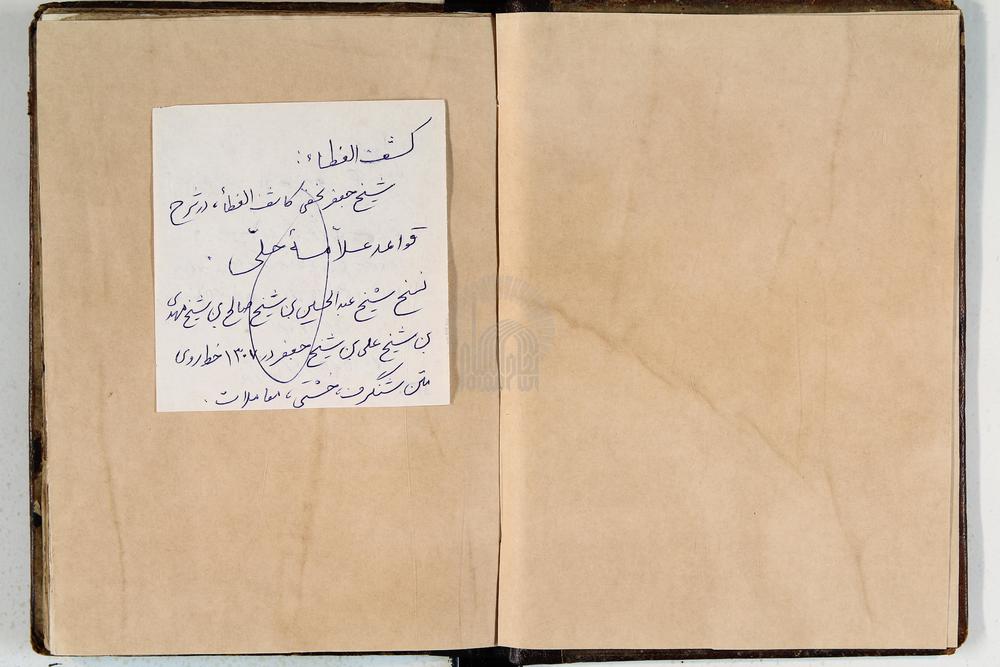 کشف الغطاء:
شیخ جعفر نجفی کاشف الغطأ، در شرح
قواعد علاّمهٔ حلّی.
نسخ شیخ عبدالحسین بن شیخ صالح بن شیخ مهدی
بن شیخ علی بن شیخ جعفر در ۱۳۰۷ خط روی
متن شنگرف، خشتی، معاملات.